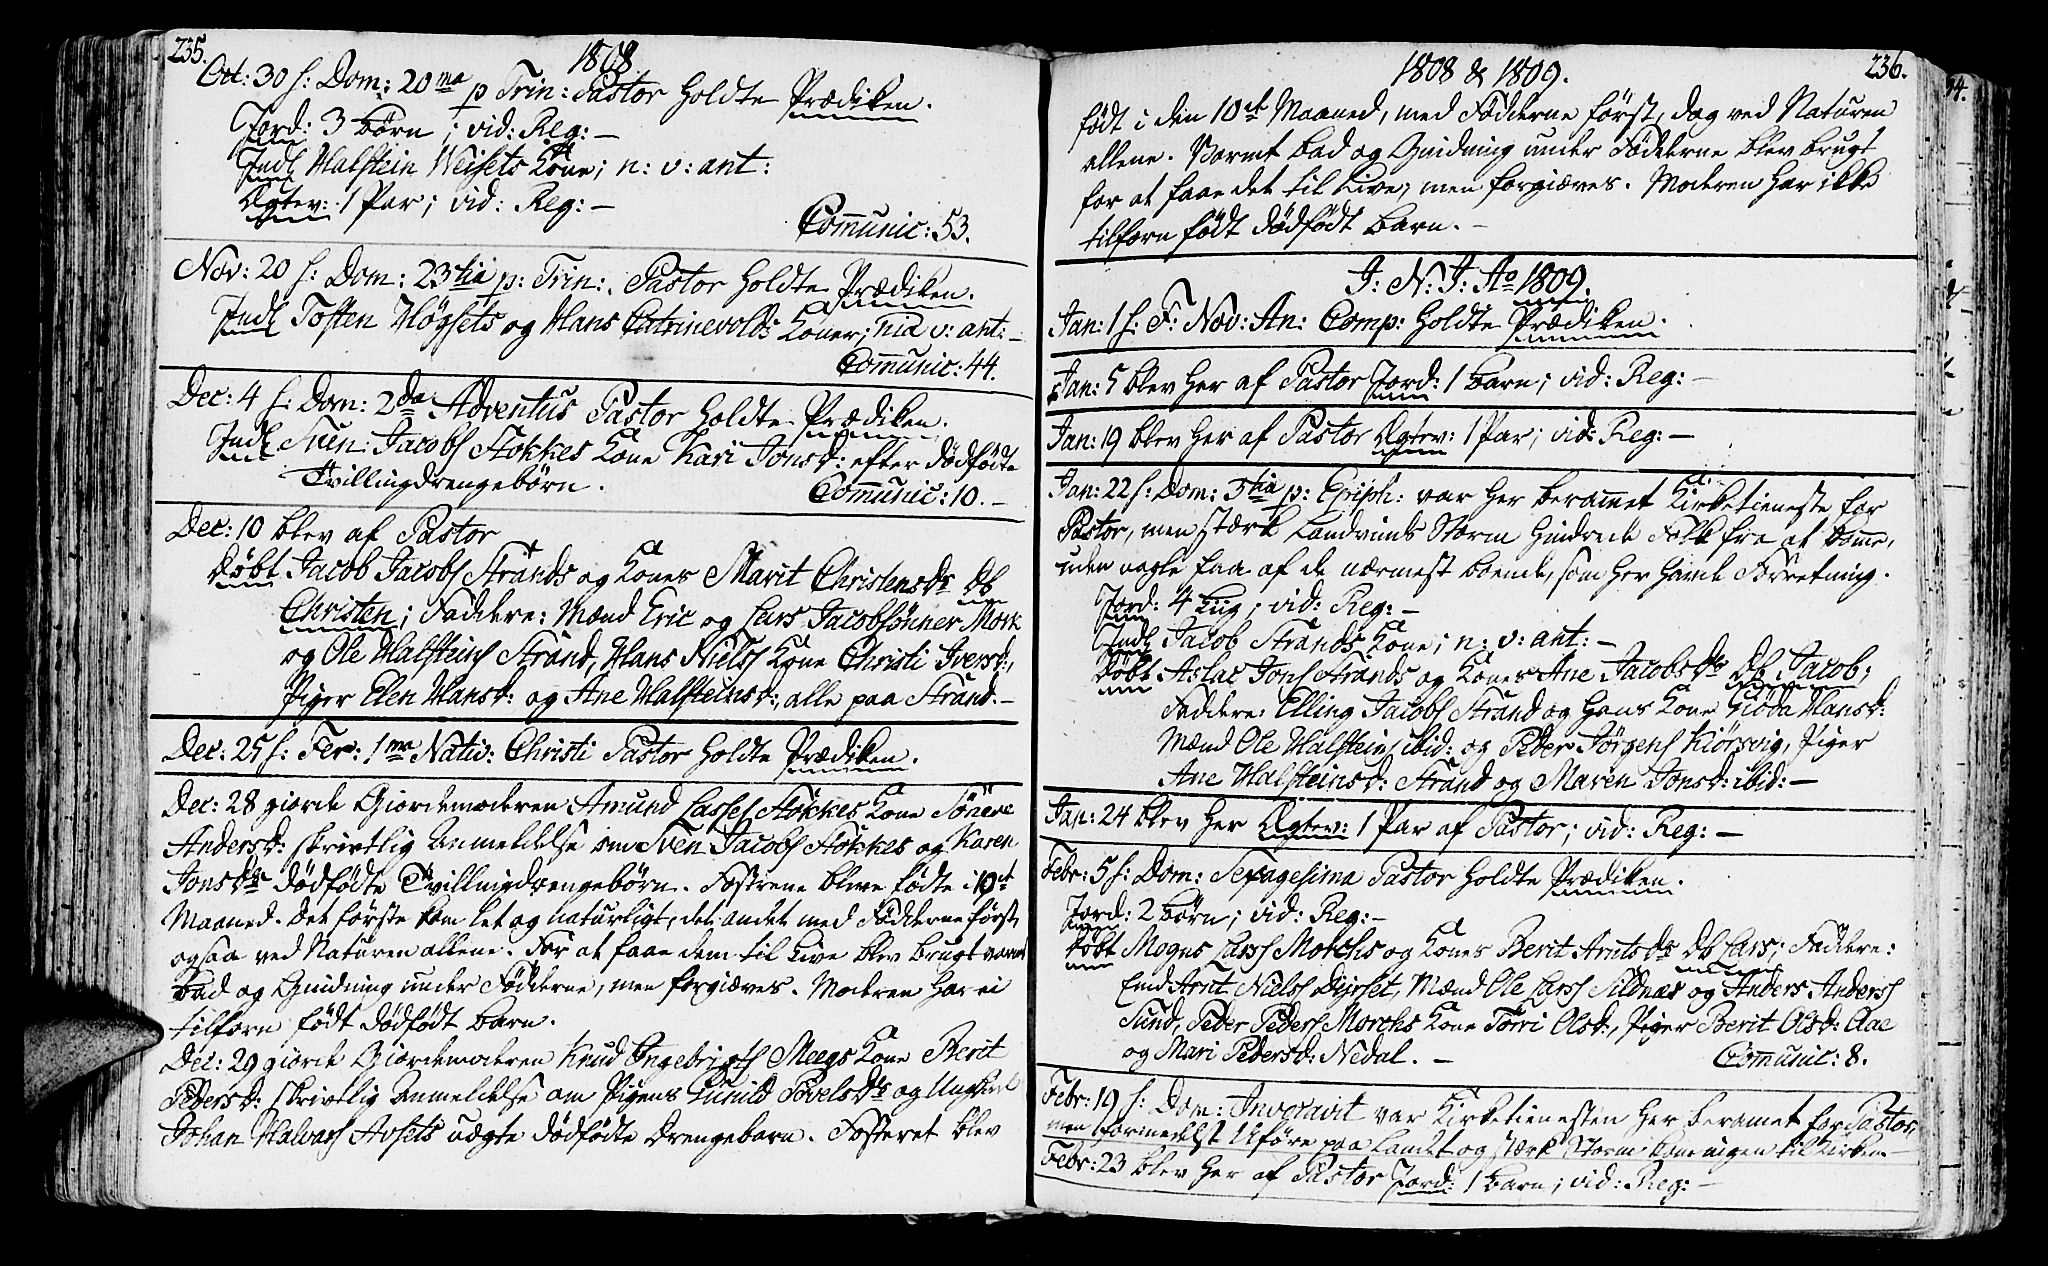 235.
1808
Oct: 30 f: Dom: 20ma p Trin: Pastor holdte Prædiken.
Jord: 3 børn; vid: Reg: –
Indl Halstein Weisets Kone; n: v: ant:
Ægtev: 1 Par; vid: Reg: –
Comunic: 53.
Nov: 20 f: Dom: 23tia p: Trin: Pastor holdte Prædiken.
Indl Tosten Högsets og Hans Catrinevolds Koner; nia v: ant: –
Comunic: 44.
Dec: 4 f: Dom: 2da Adventus Pastor holdte Prædiken.
Indl Suen Jacobs Stokkes Kone Kari Jonsd: efter dödfödte
Tvillingdrengebörn.
Comunic: 10. –
Dec: 10 blev af Pastor
döbt Jacob Jacobs Strands og Kones Marit Christensdr Db
Christen; Faddere: Mænd Eric og Lars Jacobsönner Mork
og Ole Halsteins Strand, Hans Niels Kone Christi Iversd:,
Piger Elen Hansd: og Ane Halsteinsd:, alle paa Strand. –
Dec: 25 f: Fer: 1ma Nativ: Christi Pastor holdte Prædiken.
Dec: 28 giorde Giordemoderen Amund Lasses Stökkes Kone Sönneve
Andersd: skrivtlig Anmeldelse om Sven Jacobs Stökkes og Karen
Jonsdrs dödfödte Tvillingdrengebörn. Fostrene bleve födte i 10de
Maaned. Det förste kom let og naturligt, det andet med Födderne först,
ogsaa ved Naturen allene. For at faae dem til Live blev brugt varmt
bad og Gnidning under Födderne, men forgiæves. Moderen har ei
tilforn födt dödfödt barn.
Dec: 29 giorde Giordemoderen Knud Ingebrigts Meegs Kone Berit
Pedersd: skrivtlig Anmeldelse om Pigens Gunild Povelsdrs og Ungkarl
Johan Halvars Avsets uægte dödfödte drengebarn. Fosteret blev
236.
1808 & 1809.
födt i den 10de Maaned, med Födderne först, dog ved Naturen
allene. Varmt bad og Gnidning under Födderne blev brugt
for at faae det til Live, men forgiæves. Moderen har ikke
tilforn födt dödfödt barn. –
I: N: J: Ao 1809.
Jan: 1 f: F: Nov: An: Comp: holdte Prædiken.
Jan: 5 blev her af Pastor Jord: 1 barn; vid: Reg: –
Jan: 19 blev her af Pastor Ægtev: 1 Par; vid: Reg: –
Jan: 22 f: Dom: 3tia p: Epiph: var her beramet Kirketieneste for
Pastor, men stærk Landvinds Storm hindrede Folk fra at kome,
uden nogle faa af de nærmest boende, som her havde Forretning.
Jord: 4 Liig; vid: Reg: –
Indl Jacob Strands Kone; n: v: ant: –
döbt Aslac Jons Strands og Kones Ane Jacobsdr Db Jacob;
Faddere: Elling Jacobs Strand og hans Kone Giöda Hansd:
Mænd Ole Halsteins ibid: og Peder Jörgens Kiörsvig, Piger
Ane Halsteinsd: Strand og Maren Jonsd: ibid: –
Jan: 24 blev her Ægtev: 1 Par af Pastor; vid: Reg: –
Febr: 5 f: Dom: Sexagesima Pastor holdte Prædiken.
Jord: 2 börn; vid: Reg: –
döbt Mogns Lass Morchs og Kones Berit Arntsdr Db Lars; Faddere:
Arnt Niels Dyrset, Mænd Ole Larss Sildnæs og Anders Anders
Sund, Peder Peders Morchs Kone Törri Olsd:, Piger Berit Olsd: Aae
og Mari Pedersd: Nedal. –
Comunic: 8.
Febr: 19 f: Dom: Invocavit var Kirketienesten her beramet for Pastor,
men formedelst Uföre paa Landet og stærk Storm kom ingen til Kirken –
Febr: 23 blev her af Pastor Jord: 1 barn; vid: Reg: –